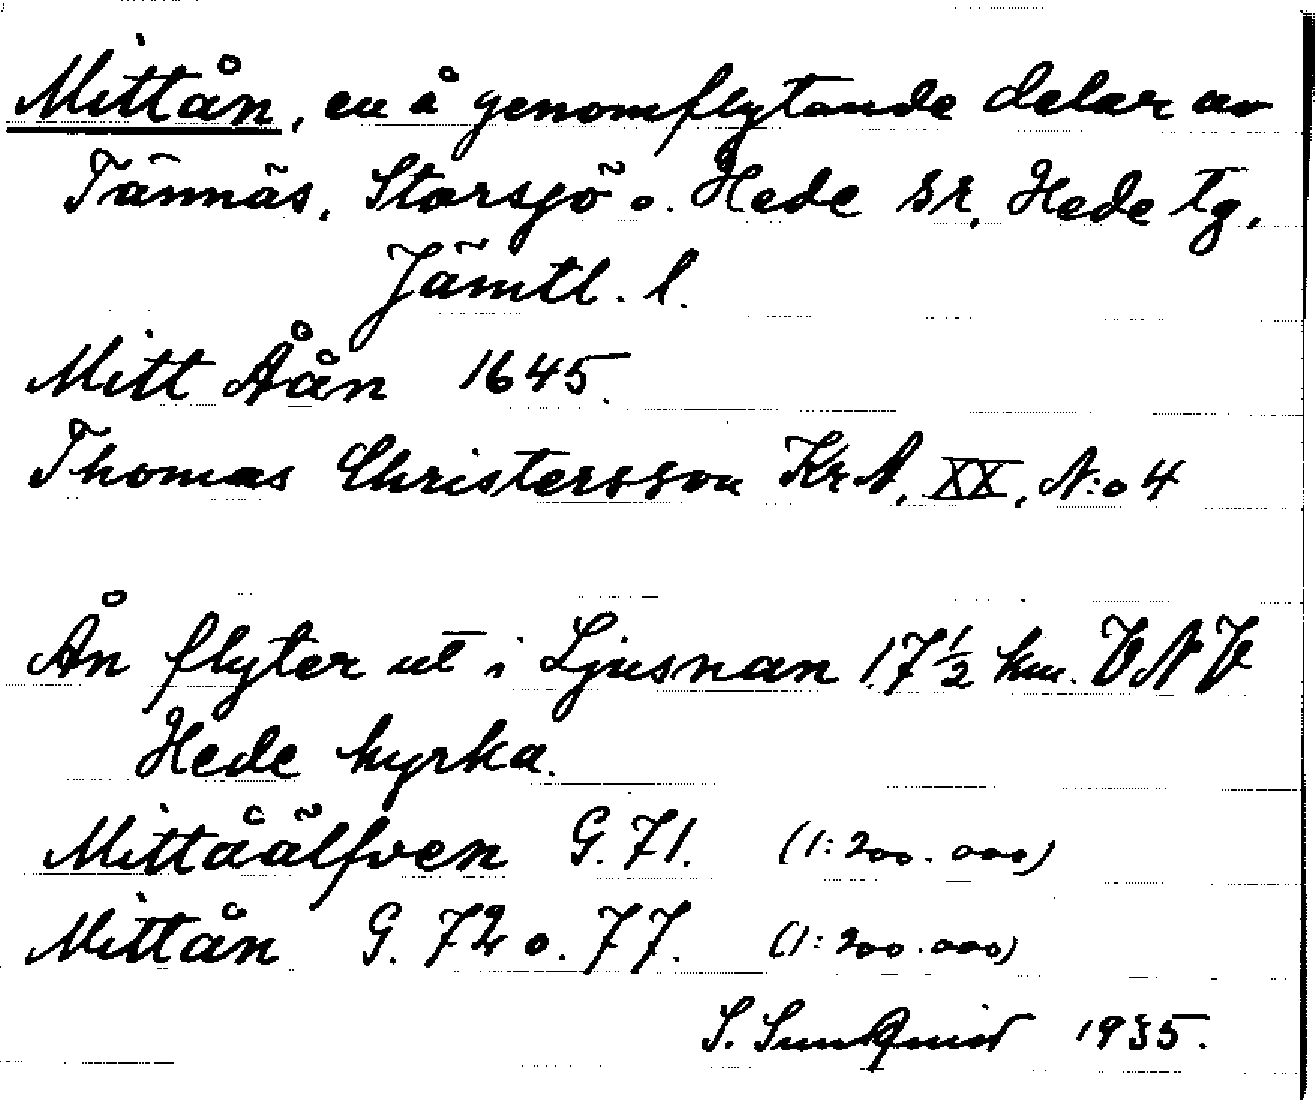 Mittån, en å genomflytande delar av
Tännäs, Storsjö o. Hede sr, Hede tg,
Jämtl. l.
Mitt Åån 1645.
Thomas Christersson Kr A, XX, N:o 4
Ån flyter ut i Ljusnan 17 1/2 km. VNV
Hede kyrka.
Mittåälfven G. 71. (1:200.000)
Mittån G. 72 o. 77. (1:200.000)
S. Sunkquist 1935.